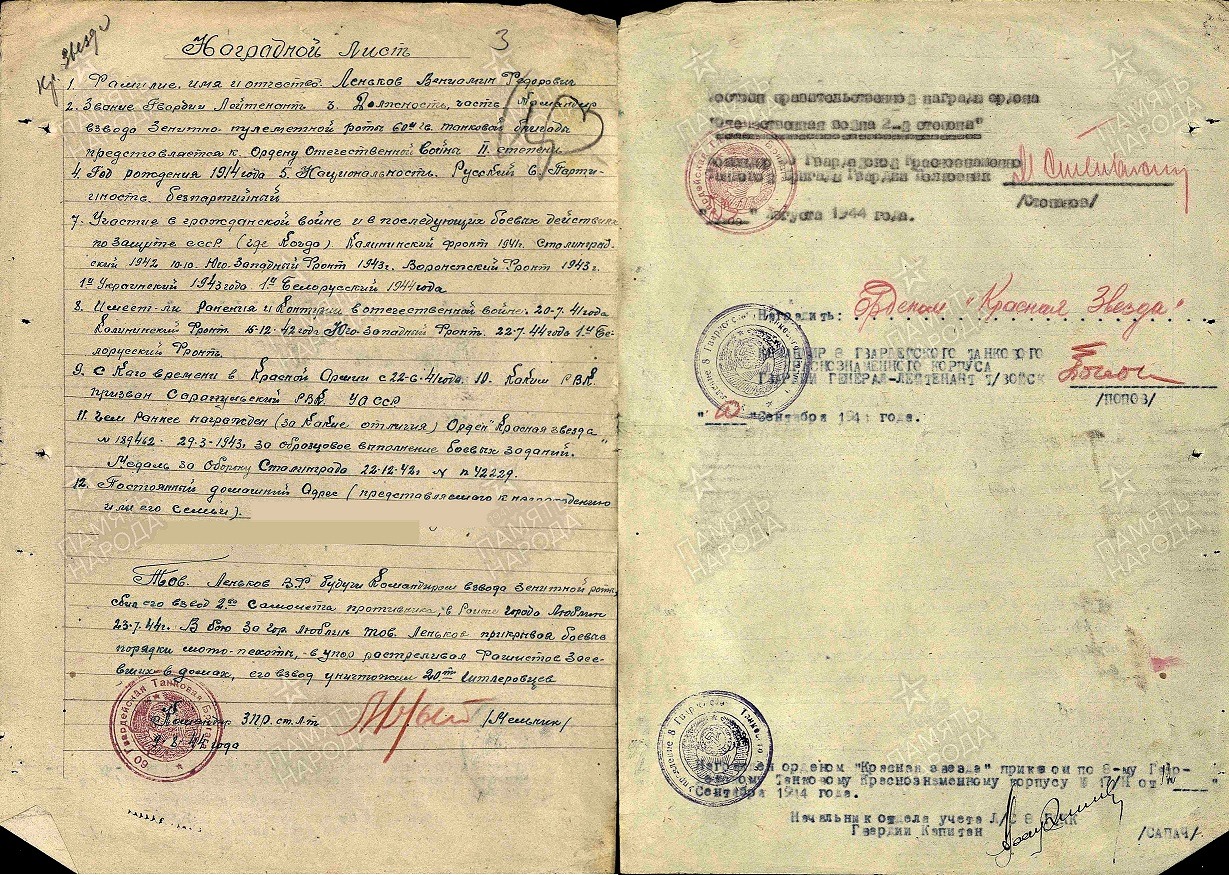 Кр. Звезда
3
Наградной Лист
1. Фамилие, имя и отчество Леньков Вениамин Федорович
2. Звание Гвардии Лейтенант 3. Должность, часть Командир
взвода Зенитно-пулеметной роты 60ой гв. танковой бригады
представляется к Ордену Отечественной Войны II степени
4. Год рождения 1914 года 5. Национальность. Русский 6. Парти-
йность безпартийный
7. Участие в гражданской войне и в последующих боевых действиях
по защите СССР. (где Когда) Калининский фронт 1941г. Сталинград-
ский 1942 Юго-Западный Фронт 1943г. Воронежский Фронт 1943г.
1й Украинский 1943 года 1й Белорусский 1944 года
8. Имеет-ли ранения и Контузии в отечественной войне. 20-7. 41 года
Калининский Фронт. 16-12-42 года Юго-Западный Фронт. 22-7.44 года 1й Бе-
лорусский Фронт.
9. С Каго времени в Красной Армии с 22-6-41 года. 10. Каким РВК
призван Сарапульский РВК. УАССР
11. Чем Раннее награжден (за Какие отличия) Орден "Красная звезда"
N 189462. 29-3-1943г за образцовое выполнение боевых заданий.
Медаль за Оборону Сталинграда 22-12-42г N 42229.
12. Постоянный домашний Адрес (представляемого к награждению
или его семьи).
Тов. Леньков В.Ф. будучи Командиром взвода зенитной роты,
сбил его взвод 2ва Самолета противника, в Районе города Люблин
23-7-44г. В бою за гор. Люблин тов. Леньков прикрывая боевые
порядки мото-пехоты, в упор растреливал Фашистов Засе-
вших в домах, его взвод уничтожил 20ть Гитлеровцев
Командир ЗПР. ст. Л-т /Мельник/
8. 44 года
60 Гвардейская Танковая Бригада
достоин правительственной награды ордена
"Отечественная война 2-й степени"
Командир 60 Гвардейской Краснознаменной
Танковой бригады Гвардии Полковник
/Степанов/
"____" Августа 1944 года.
Наградить: Орденом "Красная Звезда"
КОМАНДИР 8 ГВАРДЕЙСКОГО ТАНКОВОГО
КРАСНОЗНАМЕННОГО КОРПУСА
ГВАРДИИ ГЕНЕРАЛ-ЛЕЙТЕНАНТ Т/ВОЙСК
/ПОПОВ/
"10" Сентября 1944 года.
Награжден орденом "Красная звезда" приказом по 8-му Гвар-
дейскому Танковому Краснознаменному корпусу № /Н от "____"
Сентября 1944 года.
Начальник отдела учета Л/С 8 ГТКК
Гвардии Капитан /САПАЧ/
ПАМЯТЬ
НАРОДА